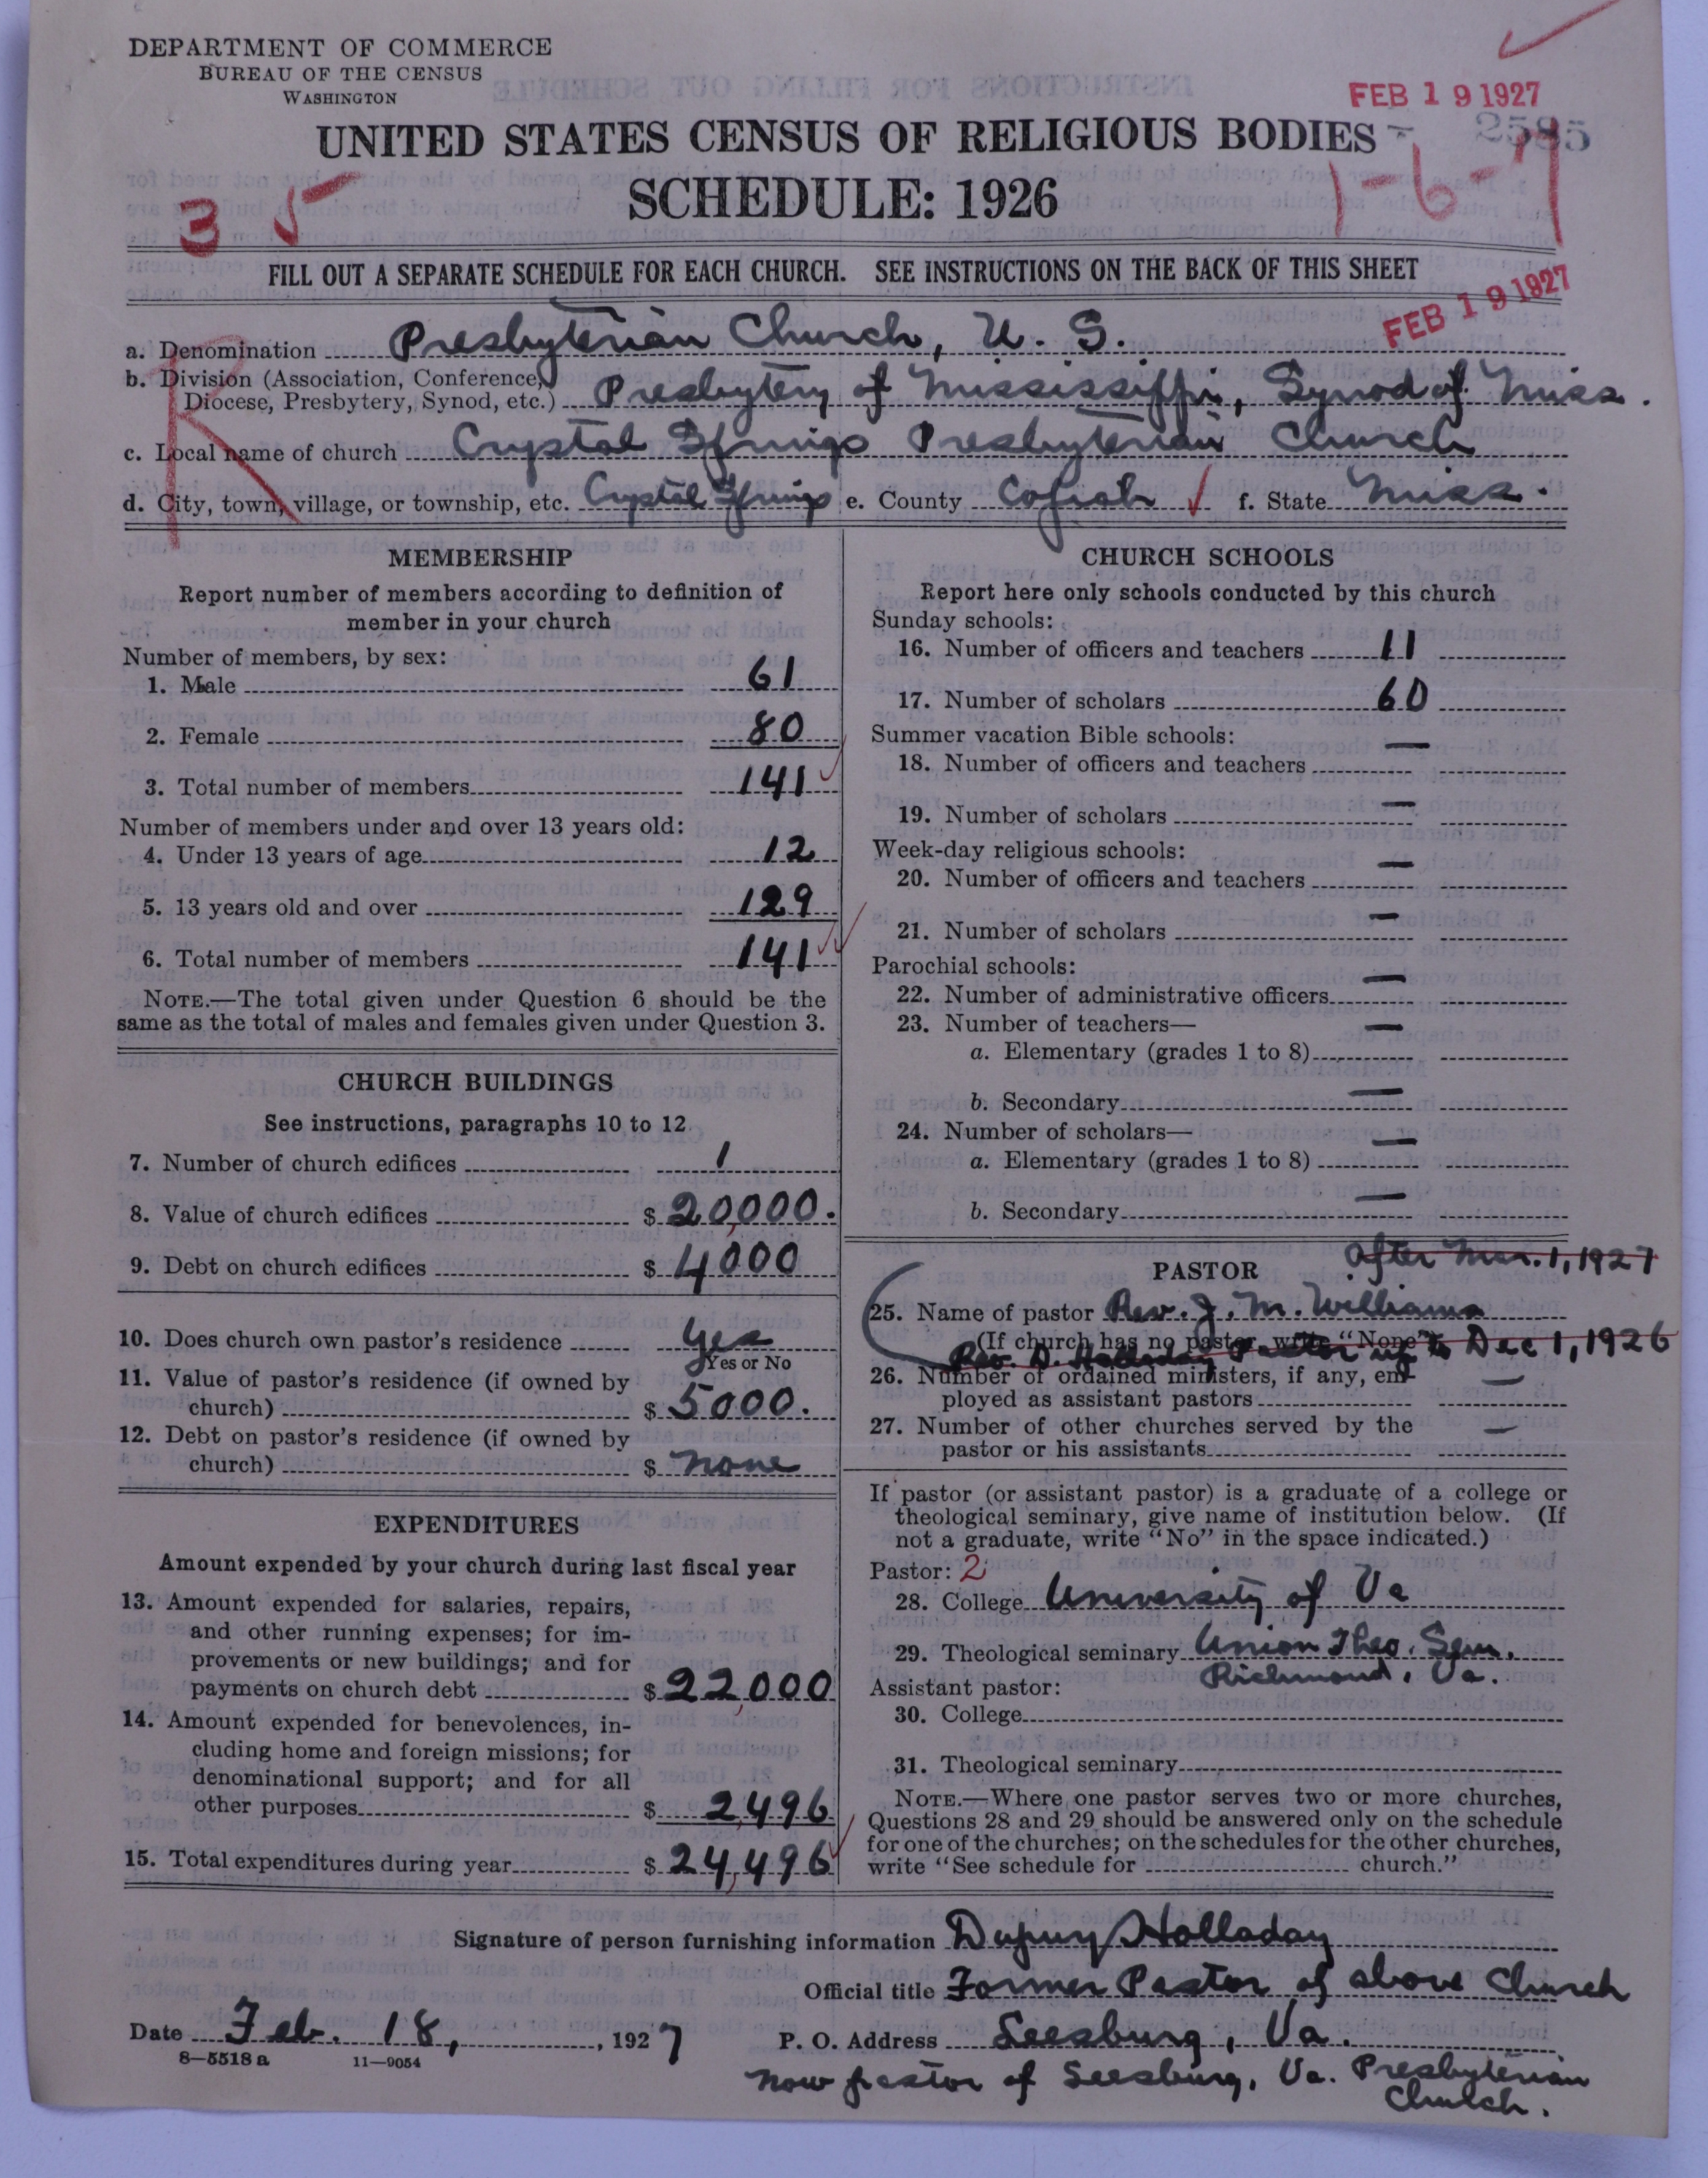 DEPARTMENT OF COMMERCE
BUREAU OF THE CENSUS
WASHINGTON
FEB 19 1927
2585
UNITED STATES CENSUS OF RELIGIOUS BODIES
SCHEDULE: 1926
3
1-6-7
FILL OUT A SEPARATE SCHEDULE FOR EACH CHURCH. SEE INSTRUCTIONS ON THE BACK OF THIS SHEET
FEB 19 1927
R
a. Denomination Presbyterian Church, U. S.
b. Division (Association, Conference,
Diocese, Presbytery, Synod, etc.) Presbytery of Mississippi, Synod of Miss.
c. Local name of church Crystal Springs Presbyterian Church
d. City, town, village, or township, etc. Crystal Springs e. County Copiah f. State Miss.
MEMBERSHIP
Report number of members according to definition of
member in your church
Number of members, by sex:
1. Male 61
2. Female 80
3. Total number of members 141
Number of members under and over 13 years old:
4. Under 13 years of age 12
5. 13 years old and over 129
6. Total number of members 141
NOTE.—The total given under Question 6 should be the
same as the total of males and females given under Question 3.
CHURCH BUILDINGS
See instructions, paragraphs 10 to 12
7. Number of church edifices 1
8. Value of church edifices $ 20,000.
9. Debt on church edifices $ 4000
10. Does church own pastor's residence Yes
Yes or No
11. Value of pastor's residence (if owned by
church) $ 5000.
12. Debt on pastor's residence (if owned by
church) $ None
EXPENDITURES
Amount expended by your church during last fiscal year
13. Amount expended for salaries, repairs,
and other running expenses; for im-
provements or new buildings; and for
payments on church debt $ 22,000
14. Amount expended for benevolences, in-
cluding home and foreign missions; for
denominational support; and for all
other purposes $ 2,496
15. Total expenditures during year $ 24,496
CHURCH SCHOOLS
Report here only schools conducted by this church
Sunday schools:
16. Number of officers and teachers 11
17. Number of scholars 60
Summer vacation Bible schools:
18. Number of officers and teachers —
19. Number of scholars —
Week-day religious schools:
20. Number of officers and teachers —
21. Number of scholars —
Parochial schools:
22. Number of administrative officers —
23. Number of teachers—
a. Elementary (grades 1 to 8) —
b. Secondary —
24. Number of scholars—
a. Elementary (grades 1 to 8) —
b. Secondary —
After Mar. 1, 1927
PASTOR
25. Name of pastor Rev. J. M. Williams
(If church has no pastor, write "None")
Rev. D. Holladay Pastor up to Dec 1, 1926
26. Number of ordained ministers, if any, em-
ployed as assistant pastors —
27. Number of other churches served by the
pastor or his assistants —
If pastor (or assistant pastor) is a graduate of a college or
theological seminary, give name of institution below. (If
not a graduate, write "No" in the space indicated.)
Pastor: 2
28. College University of Va
29. Theological seminary Union Theo. Sem.
Richmond, Va.
Assistant pastor:
30. College
31. Theological seminary
NOTE.—Where one pastor serves two or more churches,
Questions 28 and 29 should be answered only on the schedule
for one of the churches; on the schedules for the other churches,
write "See schedule for church."
Signature of person furnishing information Dupuy Holladay
Official title Former Pastor of above Church
Date Feb. 18, 1927 P. O. Address Leesburg, Va.
8—5518 a 11—9054
Now pastor of Leesburg, Va. Presbyterian
Church.